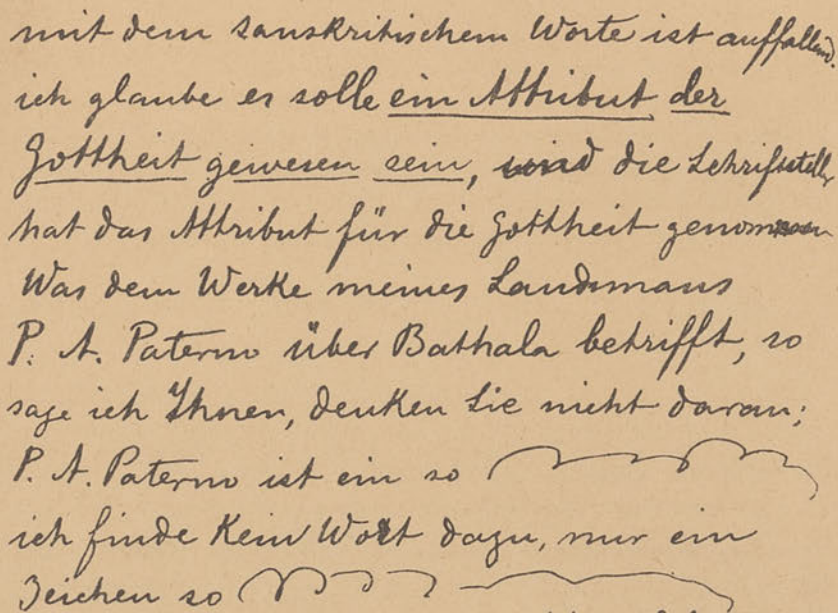 mit dem sanskritischem Worte ist auffallend.
ich glaube es solle ein Attribut der
Gottheit gewesen sein, und die Schriftsteller
hat das Attribut für die Gottheit genommen
Was dem Werke meines Landsmans
P. A. Paterno über Bathala betrifft, so
sage ich Ihnen, denken Sie nicht daran;
P. A. Paterno ist ein so
ich finde kein Wort dazu, nur ein
Zeichen so